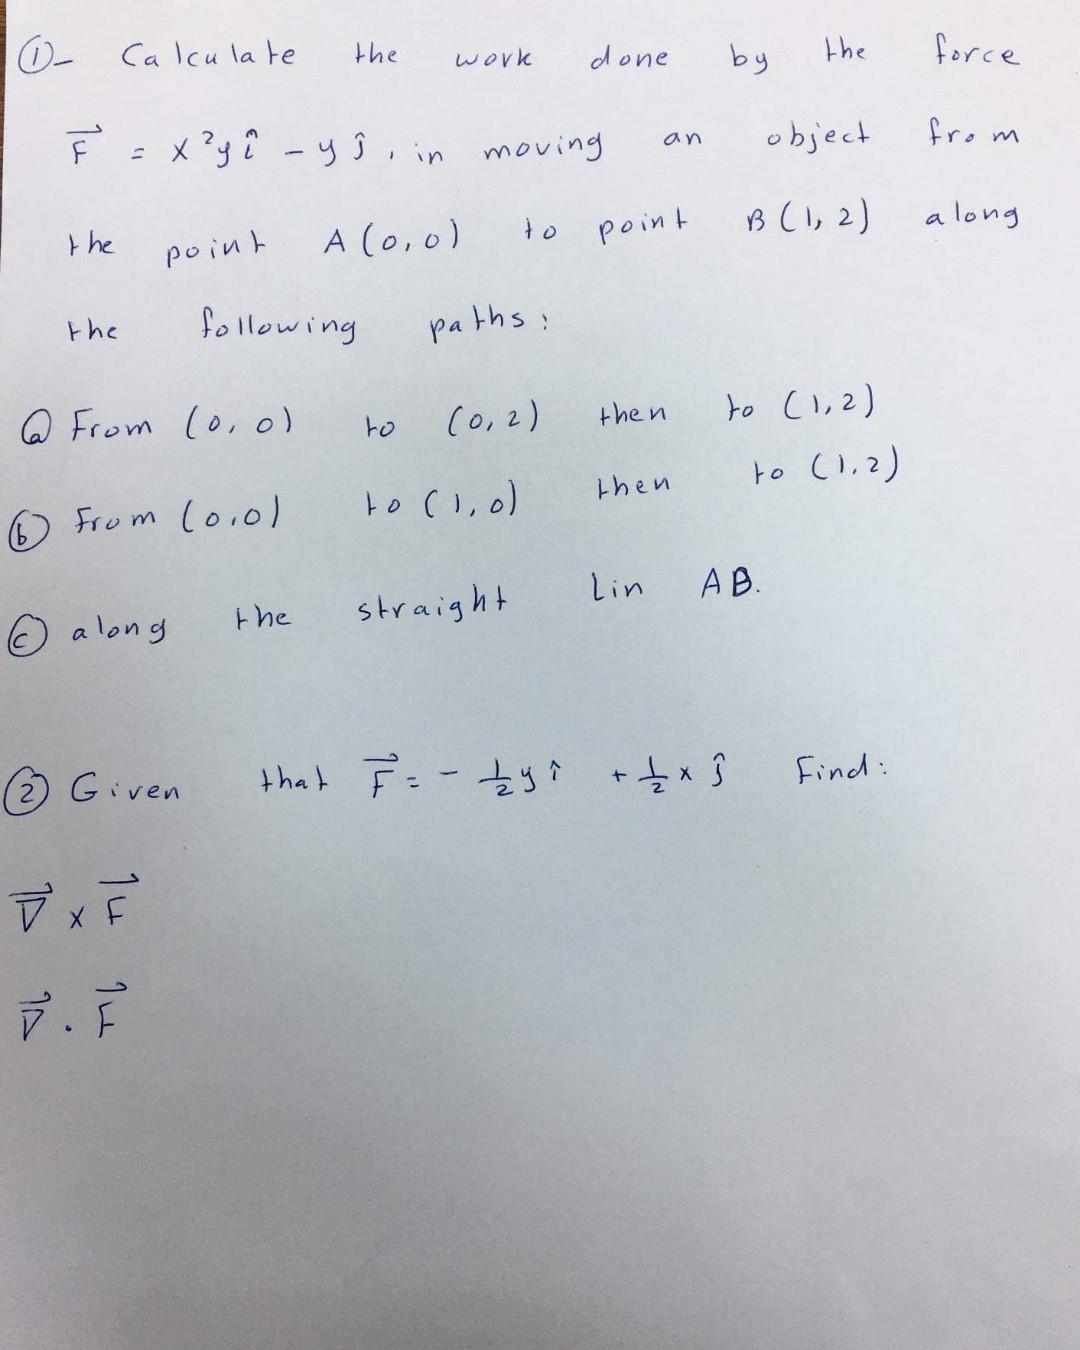 ①- Calculate the work done by the force
F⃗ = x²y î - y ĵ, in moving an object from
the point A (0,0) to point B (1, 2) along
the following paths:
ⓐ From (0,0) to (0,2) then to (1,2)
ⓑ From (0,0) to (1,0) then to (1,2)
ⓒ along the straight Lin AB.
② Given that F⃗ = - ½ y î + ½ x ĵ Find:
∇⃗ x F⃗
∇⃗ . F⃗